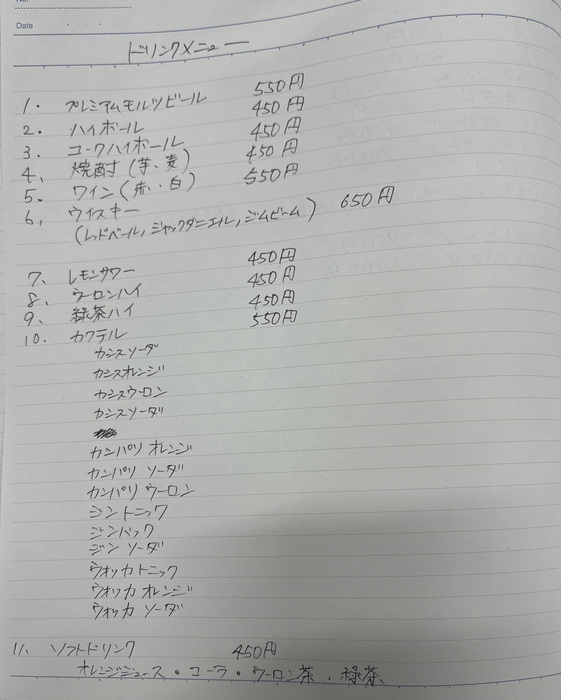 No.
Date
ドリンクメニュー
1. プレミアムモルツビール 550円
2. ハイボール 450円
3. コークハイボール 450円
4、焼酎(芋、麦) 450円
5. ワイン(赤・白) 550円
6、ウイスキー 650円
(レッドベール, ジャックダニエル, ジムビーム)
7、レモンサワー 450円
8、ウーロンハイ 450円
9、緑茶ハイ 450円
10、カクテル 550円
カシスソーダ
カシスオレンジ
カシスウーロン
カシスソーダ
カンパリ オレンジ
カンパリ ソーダ
カンパリ ウーロン
ジントニック
ジンバック
ジン ソーダ
ウオッカトニック
ウオッカ オレンジ
ウオッカ ソーダ
11、ソフトドリンク 450円
オレンジジュース・コーラ・ウーロン茶・緑茶、